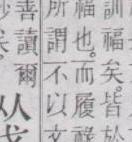 訓福矣。皆於
福也。而履祿
所謂不以文
善讀爾
从
矣。